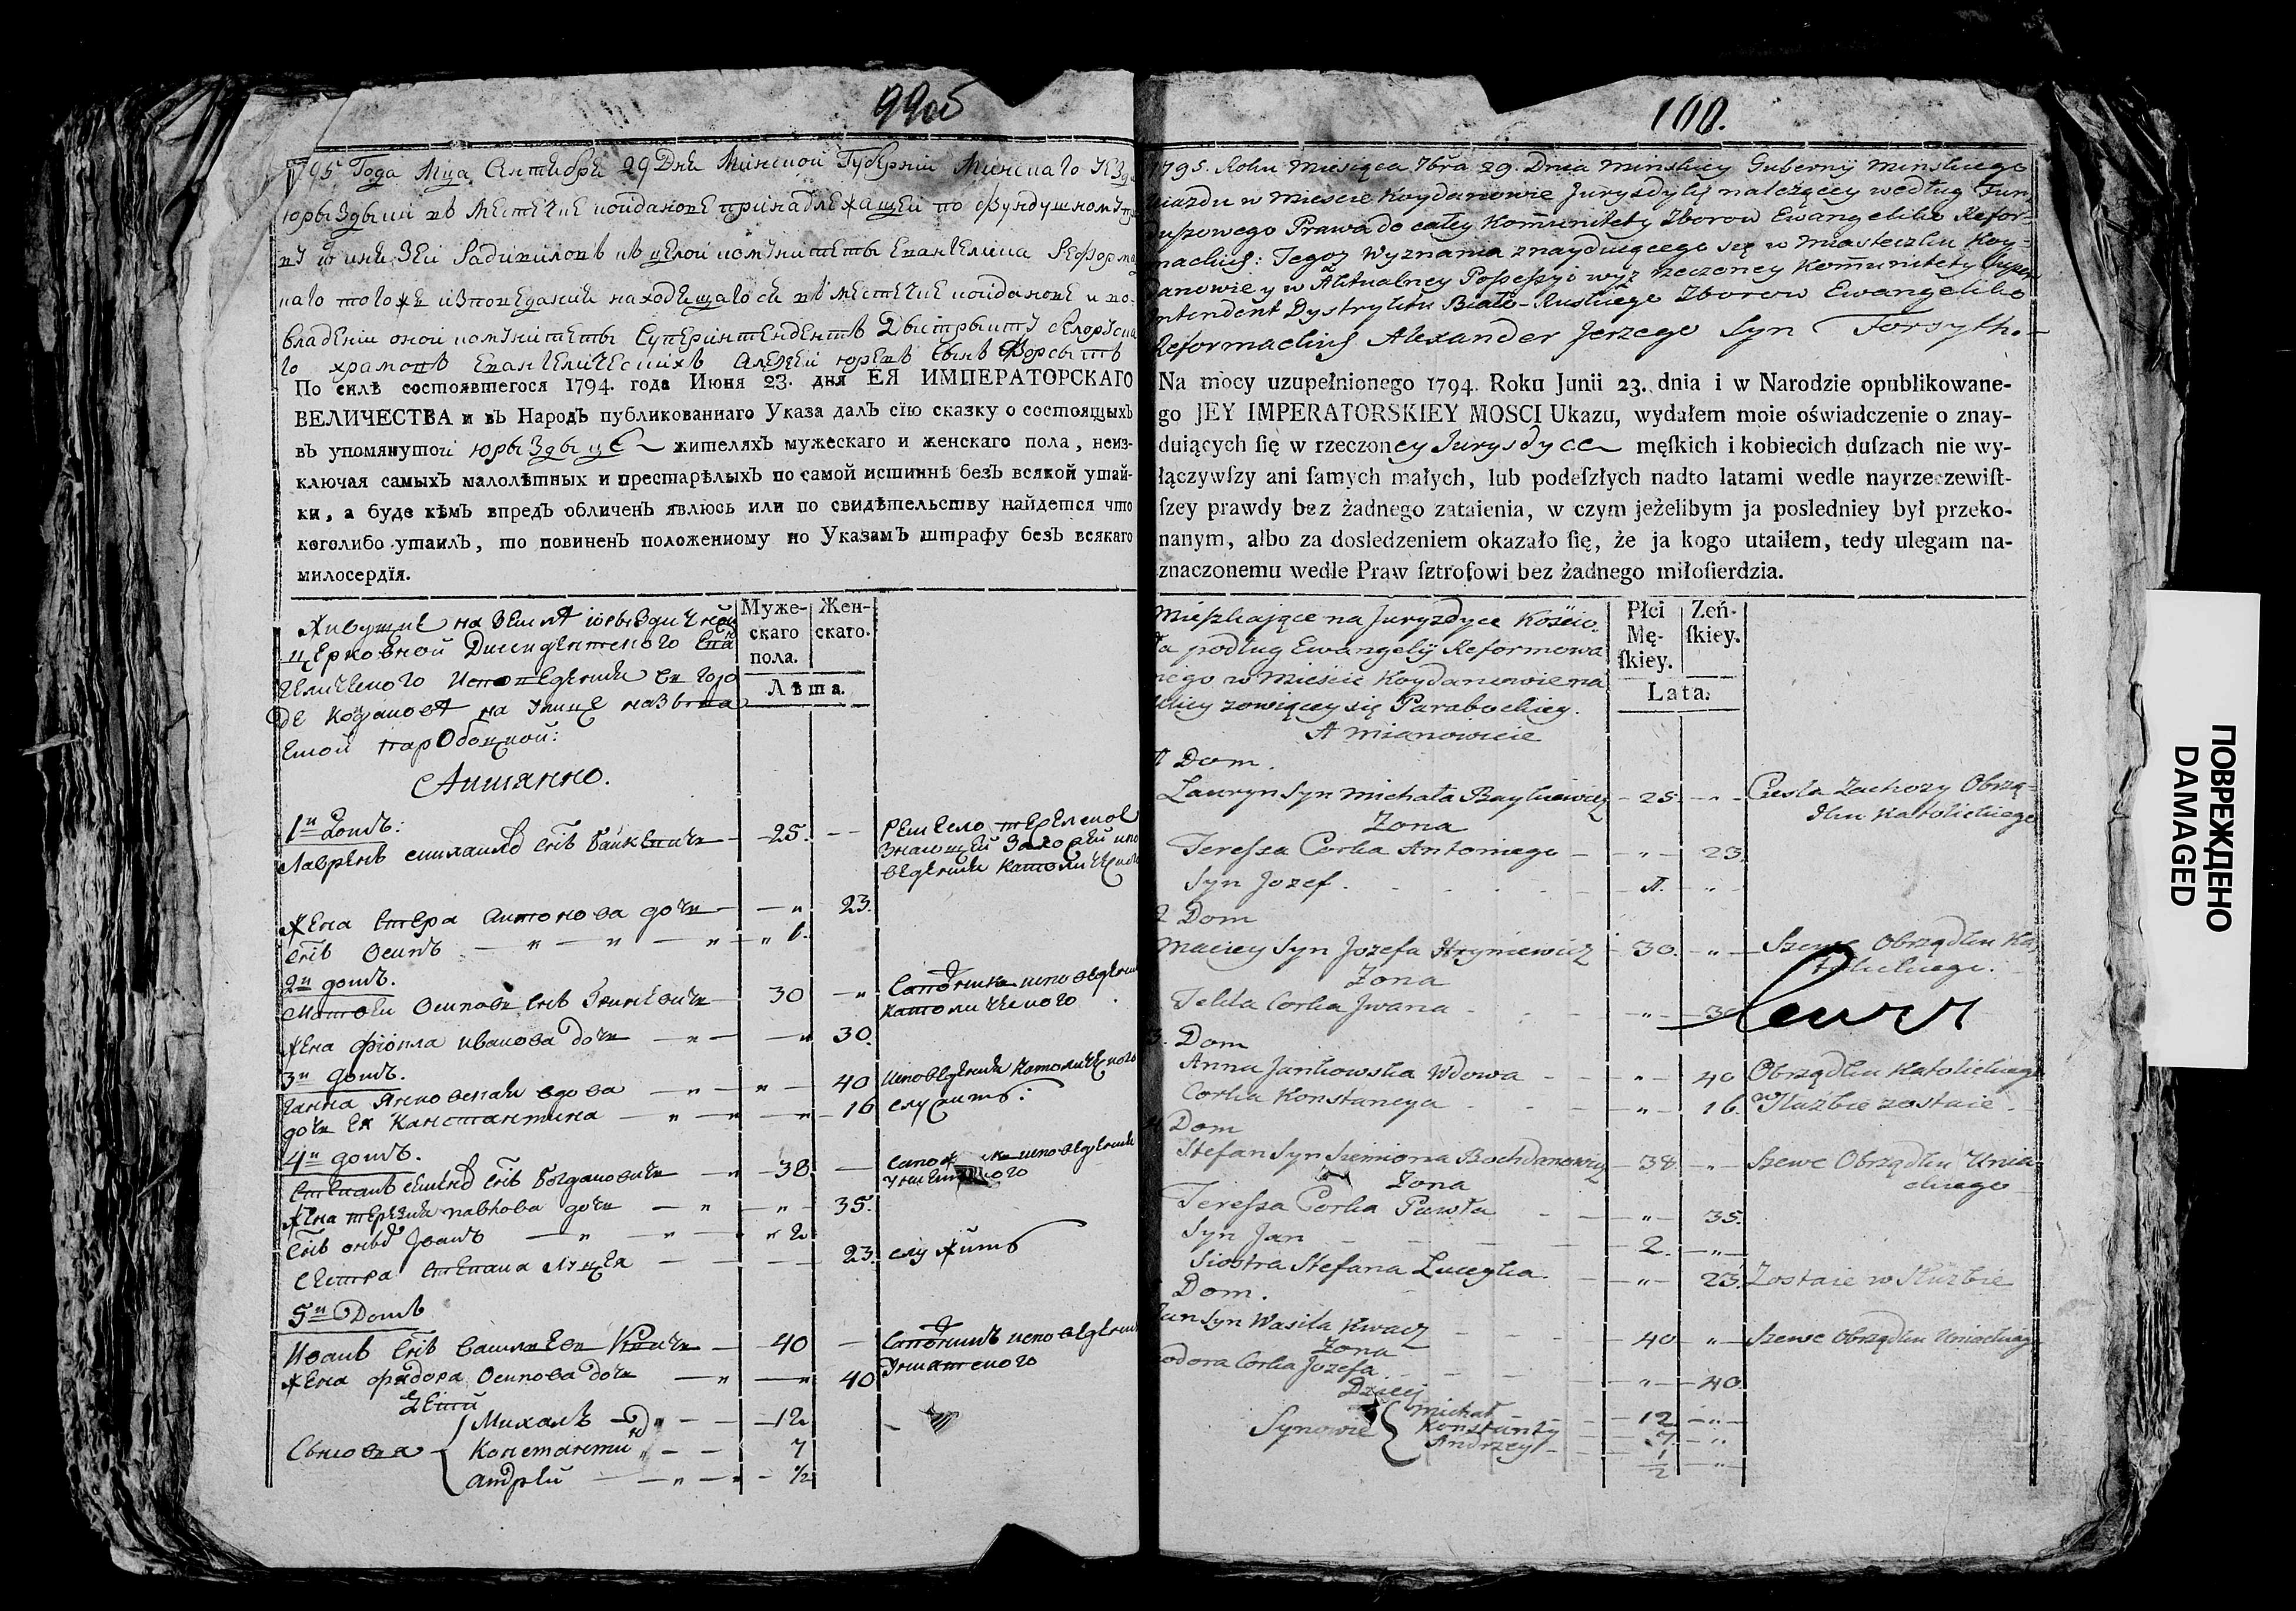 99об
1795 Года Мца Сентебря 29 Дня Минской Губернїи Минскаго
юрыздыки въ местечке койданове принадлежащей по фундушному
Радивиловъ въ целой комунитеты Евангелика Реформа
каго того же изповеданїя находещагося въ местечке койданове и во
владенїи оной комунитеты Суперинтендентъ Дыстрыкту белоруска
го храмовъ Евангелическихъ Алезей юревъ сынъ Форсытъ
По силѣ состоявшегося 1794. года Июня 23. дня ЕЯ ИМПЕРАТОРСКАГО
ВЕЛИЧЕСТВА и въ Народъ публикованнаго Указа далъ сїю сказку о состоящыхъ
въ упомянутой юрыздыце жителяхъ мужескаго и женскаго пола, неиз-
ключая самыхъ малолѣтныхъ и престарѣлыхъ по самой истиннѣ безъ всякой утай-
ки, а буде кѣмъ впредъ обличенъ явлюсь или по свидѣтельству найдется что
коголибо утаилъ, то повиненъ положенному по Указамъ штрафу безъ всякаго
милосердїя.
Живущие на земле юрыздичной
церковной Дисидентского Еван
гелического Исповедения в горо
де Койданове на улице называ
емой Паробоцкой:
Аимянно.
Муже-
скаго
пола.
Жен-
скаго.
Лѣта.
1й Домъ:
Лаврень снъ Байкевичь 25.
жена Антонова дочь 23.
снъ Осипъ 1.
2й домъ.
Матфей Осиповъ снъ 30 исповедения
католического
жена фіокла иванова дочь 30.
3й домъ.
Ганна Янковская вдова 40 исповедения католического
дочь Ея Канстантина 16 служитъ:
4й домъ.
Степанъ снъ Богдановичь 38 исповедения
жена терезия павлова дочь 35.
снъ онаго Іванъ 2
сестра Степана Луцея 23. служитъ
5й Домъ
Иванъ снъ Васильевъ 40 исповедения
Униатского
жена фядора Осипова дочь 40
Дети
Сыновья
Михалъ 12
Константи 7
Андрей ½
100.
1795. Roku Miesiąca 7bra. 29. Dnia Minskiey Guberny Minskiego
iazdu w Miescie Koydanowie Jurysdyki należącey według Fun
uszowego Prawa do całey Kommunitety Zborow Ewangeliko Refor-
mackich: Tegoż Wyznania znayduiącego się w Miasteczku Koy-
danowie y w Aktualney Possessyi wyż rzeczoney Kommunitety Super
intendent Dystryktu Biało-Ruskiego Zborow Ewangeliko
Reformackich Alexander Jerzego Syn Forsyth.
Na mocy uzupełnionego 1794. Roku Junii 23. dnia i w Narodzie opublikowane-
go JEY IMPERATORSKIEY MOSCI Ukazu, wydałem moie oświadczenie o znay-
duiących ſię w rzeczoney Jurysdyce męſkich i kobiecich duſzach nie wy-
łączywſzy ani ſamych małych, lub podeſzłych nadto latami wedle nayrzeczewiſt-
ſzey prawdy bez żadnego zataienia, w czym jeżelibym ja posledniey był przeko-
nanym, albo za dosledzeniem okazało ſię, że ja kogo utaiłem, tedy ulegam na-
znaczonemu wedle Praw ſztrofowi bez żadnego miłoſierdzia.
Mieszkaiące na Juryzdyce Kościo
ła podług Ewangelij Reformowa
nego w Mieście Koydanowie na
Ulicy zowiącey się Parabockiey.
A mianowicie
Płci
Mę-
ſkiey.
Zeń-
ſkiey.
Lata.
1 Dom.
Lauryn Syn Michała Baykiewicz 25 Ciesla Zachozy Obrzą-
dku Katolickiego
Zona
Teressa Corka Antoniego 23.
Syn Jozef. 1.
2 Dom
Maciey Syn Jozefa Hryniewicz 30. Szewc Obrządku Ka
tolickiego.
Zona
Tekla Corka Jwana 30
3. Dom
Anna Jankowska Wdowa 40 Obrządku Katolickiego
Corka Konstancya 16. w Służbie zostaie.
4 Dom
Stefan Syn Siemiona Bochdanowicz 38. Szewc Obrządku Unia
ckiego
Zona
Teressa Corka Pawła 35.
Syn Jan 2.
Siostra Stefana Luceyka. 23. Zostaie w Służbie
Dom.
Jan Syn Wasila Kwacz 40 Szewc Obrządku Uniackiego
Zona
odora Corka Jozefa 40
Dzieci
Synowie
Michał 12
Konstanty 7.
Andrzey 1/2
ПОВРЕЖДЕНО
DAMAGED